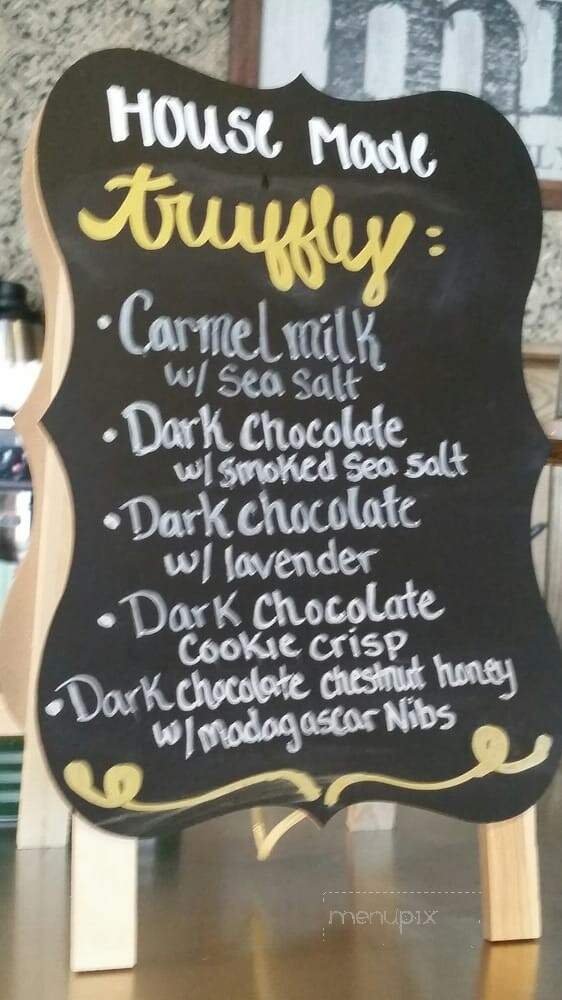 House Made
truffles:
• Carmel milk
w/ sea salt
• Dark chocolate
w/ smoked sea salt
• Dark chocolate
w/ lavender
• Dark chocolate
cookie crisp
• Dark chocolate chestnut honey
w/ madagascar Nibs
menupix